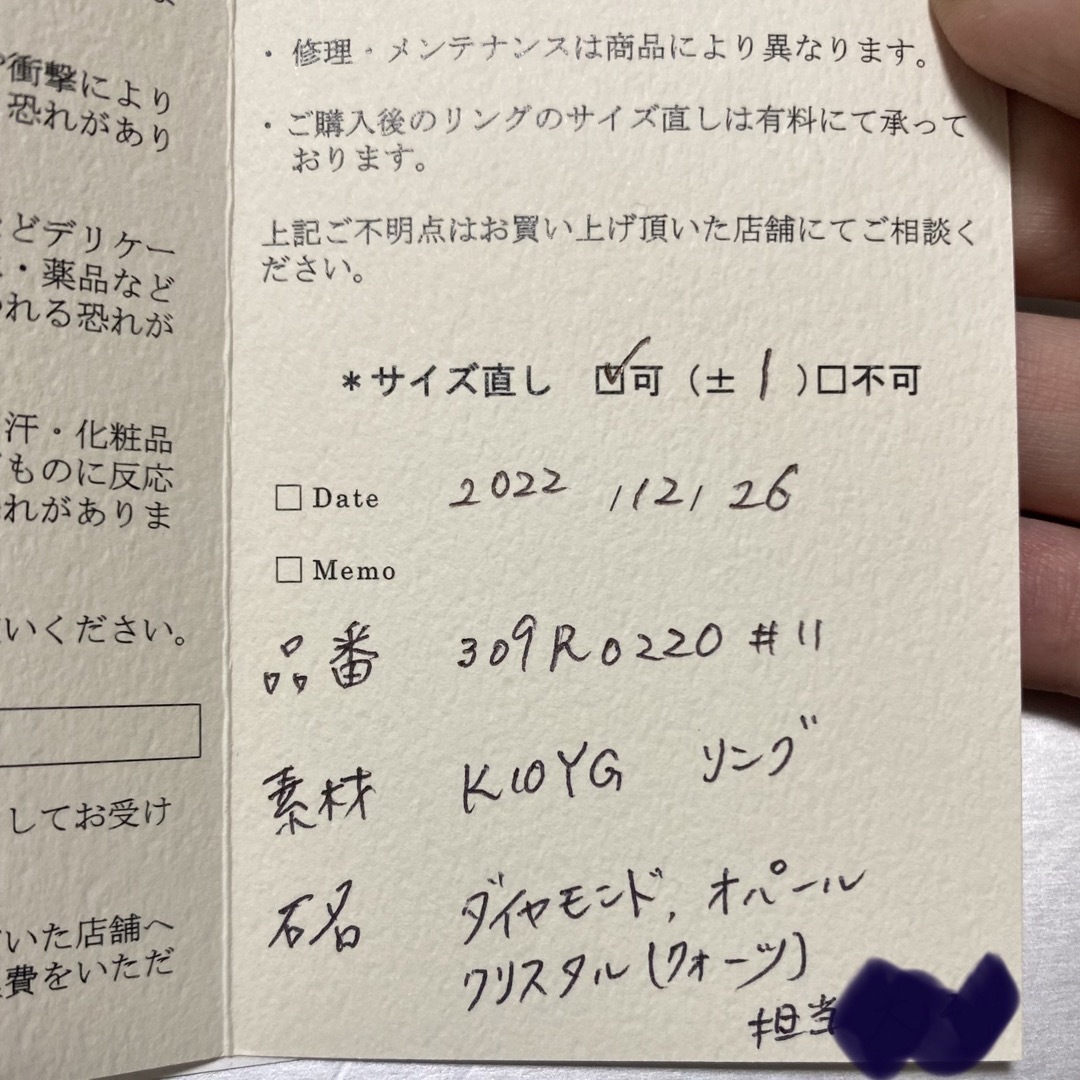 衝撃により
恐れがあり
どデリケー
・薬品など
れる恐れが
汗・化粧品
ものに反応
れがありま
いください。
してお受け
いた店舗へ
費をいただ
・修理・メンテナンスは商品により異なります。
・ご購入後のリングのサイズ直しは有料にて承って
おります。
上記ご不明点はお買い上げ頂いた店舗にてご相談く
ださい。
*サイズ直し ☑可（± 1 ）□不可
□ Date 2022 / 12 / 26
□ Memo
品番 309R0220 #11
素材 K10YG リング
石名 ダイヤモンド, オパール
クリスタル(クォーツ)
担当